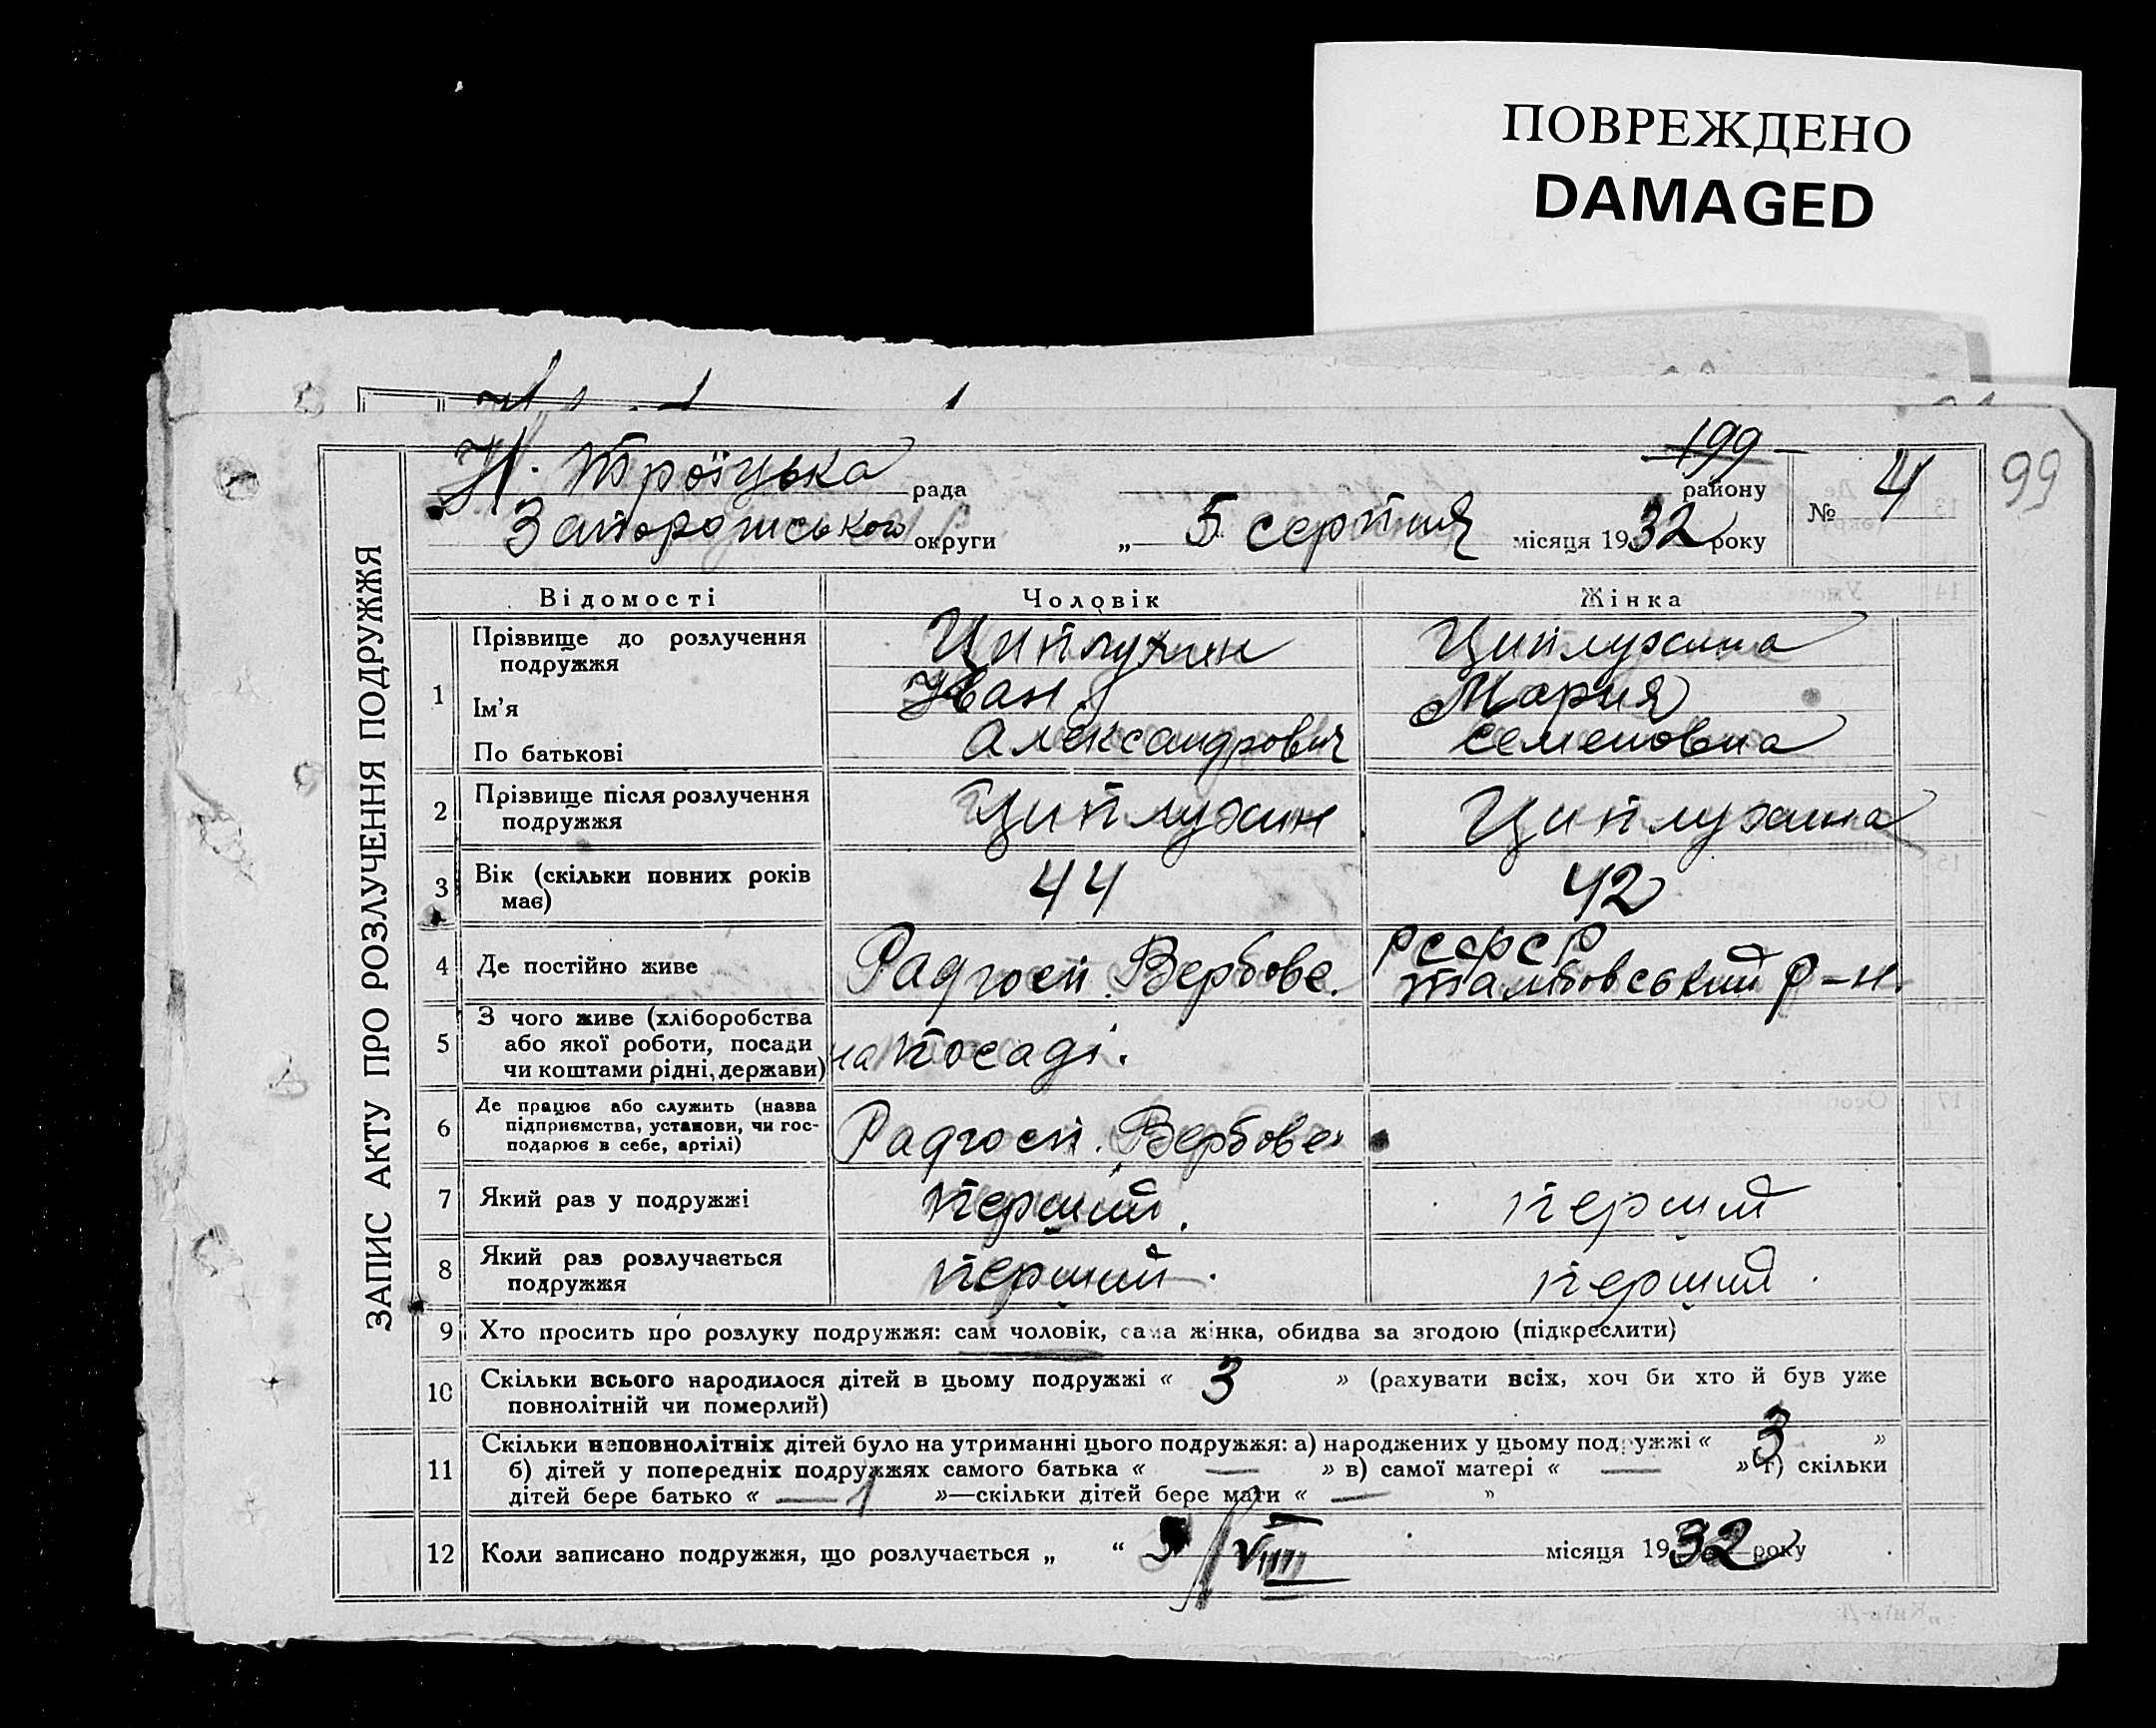 ПОВРЕЖДЕНО
DAMAGED
199
Н. Троїцька рада району № 4 99
Запорожського округи „ 5 серпня місяця 1932 року
ЗАПИС АКТУ ПРО РОЗЛУЧЕННЯ ПОДРУЖЖЯ
Відомості Чоловік Жінка
1 Прізвище до розлучення подружжя Циплухин Циплухина
Ім'я Иван Мария
По батькові Александрович Семеновна
2 Прізвище після розлучення подружжя Циплухин Циплухина
3 Вік (скільки повних років має) 44 42
4 Де постійно живе Радгосп. Вербове. РСФСР Тамбовський р-н.
5 З чого живе (хліборобства або якої роботи, посади чи коштами рідні, держави) на посаді.
6 Де працює або служить (назва підприємства, установи, чи господарює в себе, артілі) Радгосп. Вербове
7 Який раз у подружжі перший. перший
8 Який раз розлучається подружжя перший. перший.
9 Хто просить про розлуку подружжя: сам чоловік, сама жінка, обидва за згодою (підкреслити)
10 Скільки всього народилося дітей в цьому подружжі « 3 » (рахувати всіх, хоч би хто й був уже
повнолітній чи померлий)
11 Скільки неповнолітніх дітей було на утриманні цього подружжя: а) народжених у цьому подружжі « 3 »
б) дітей у попередніх подружжях самого батька « — » в) самої матері « — » г) скільки
дітей бере батько « — 1 »—скільки дітей бере мати « — »
12 Коли записано подружжя, що розлучається „ “ / VIII місяця 1932 року